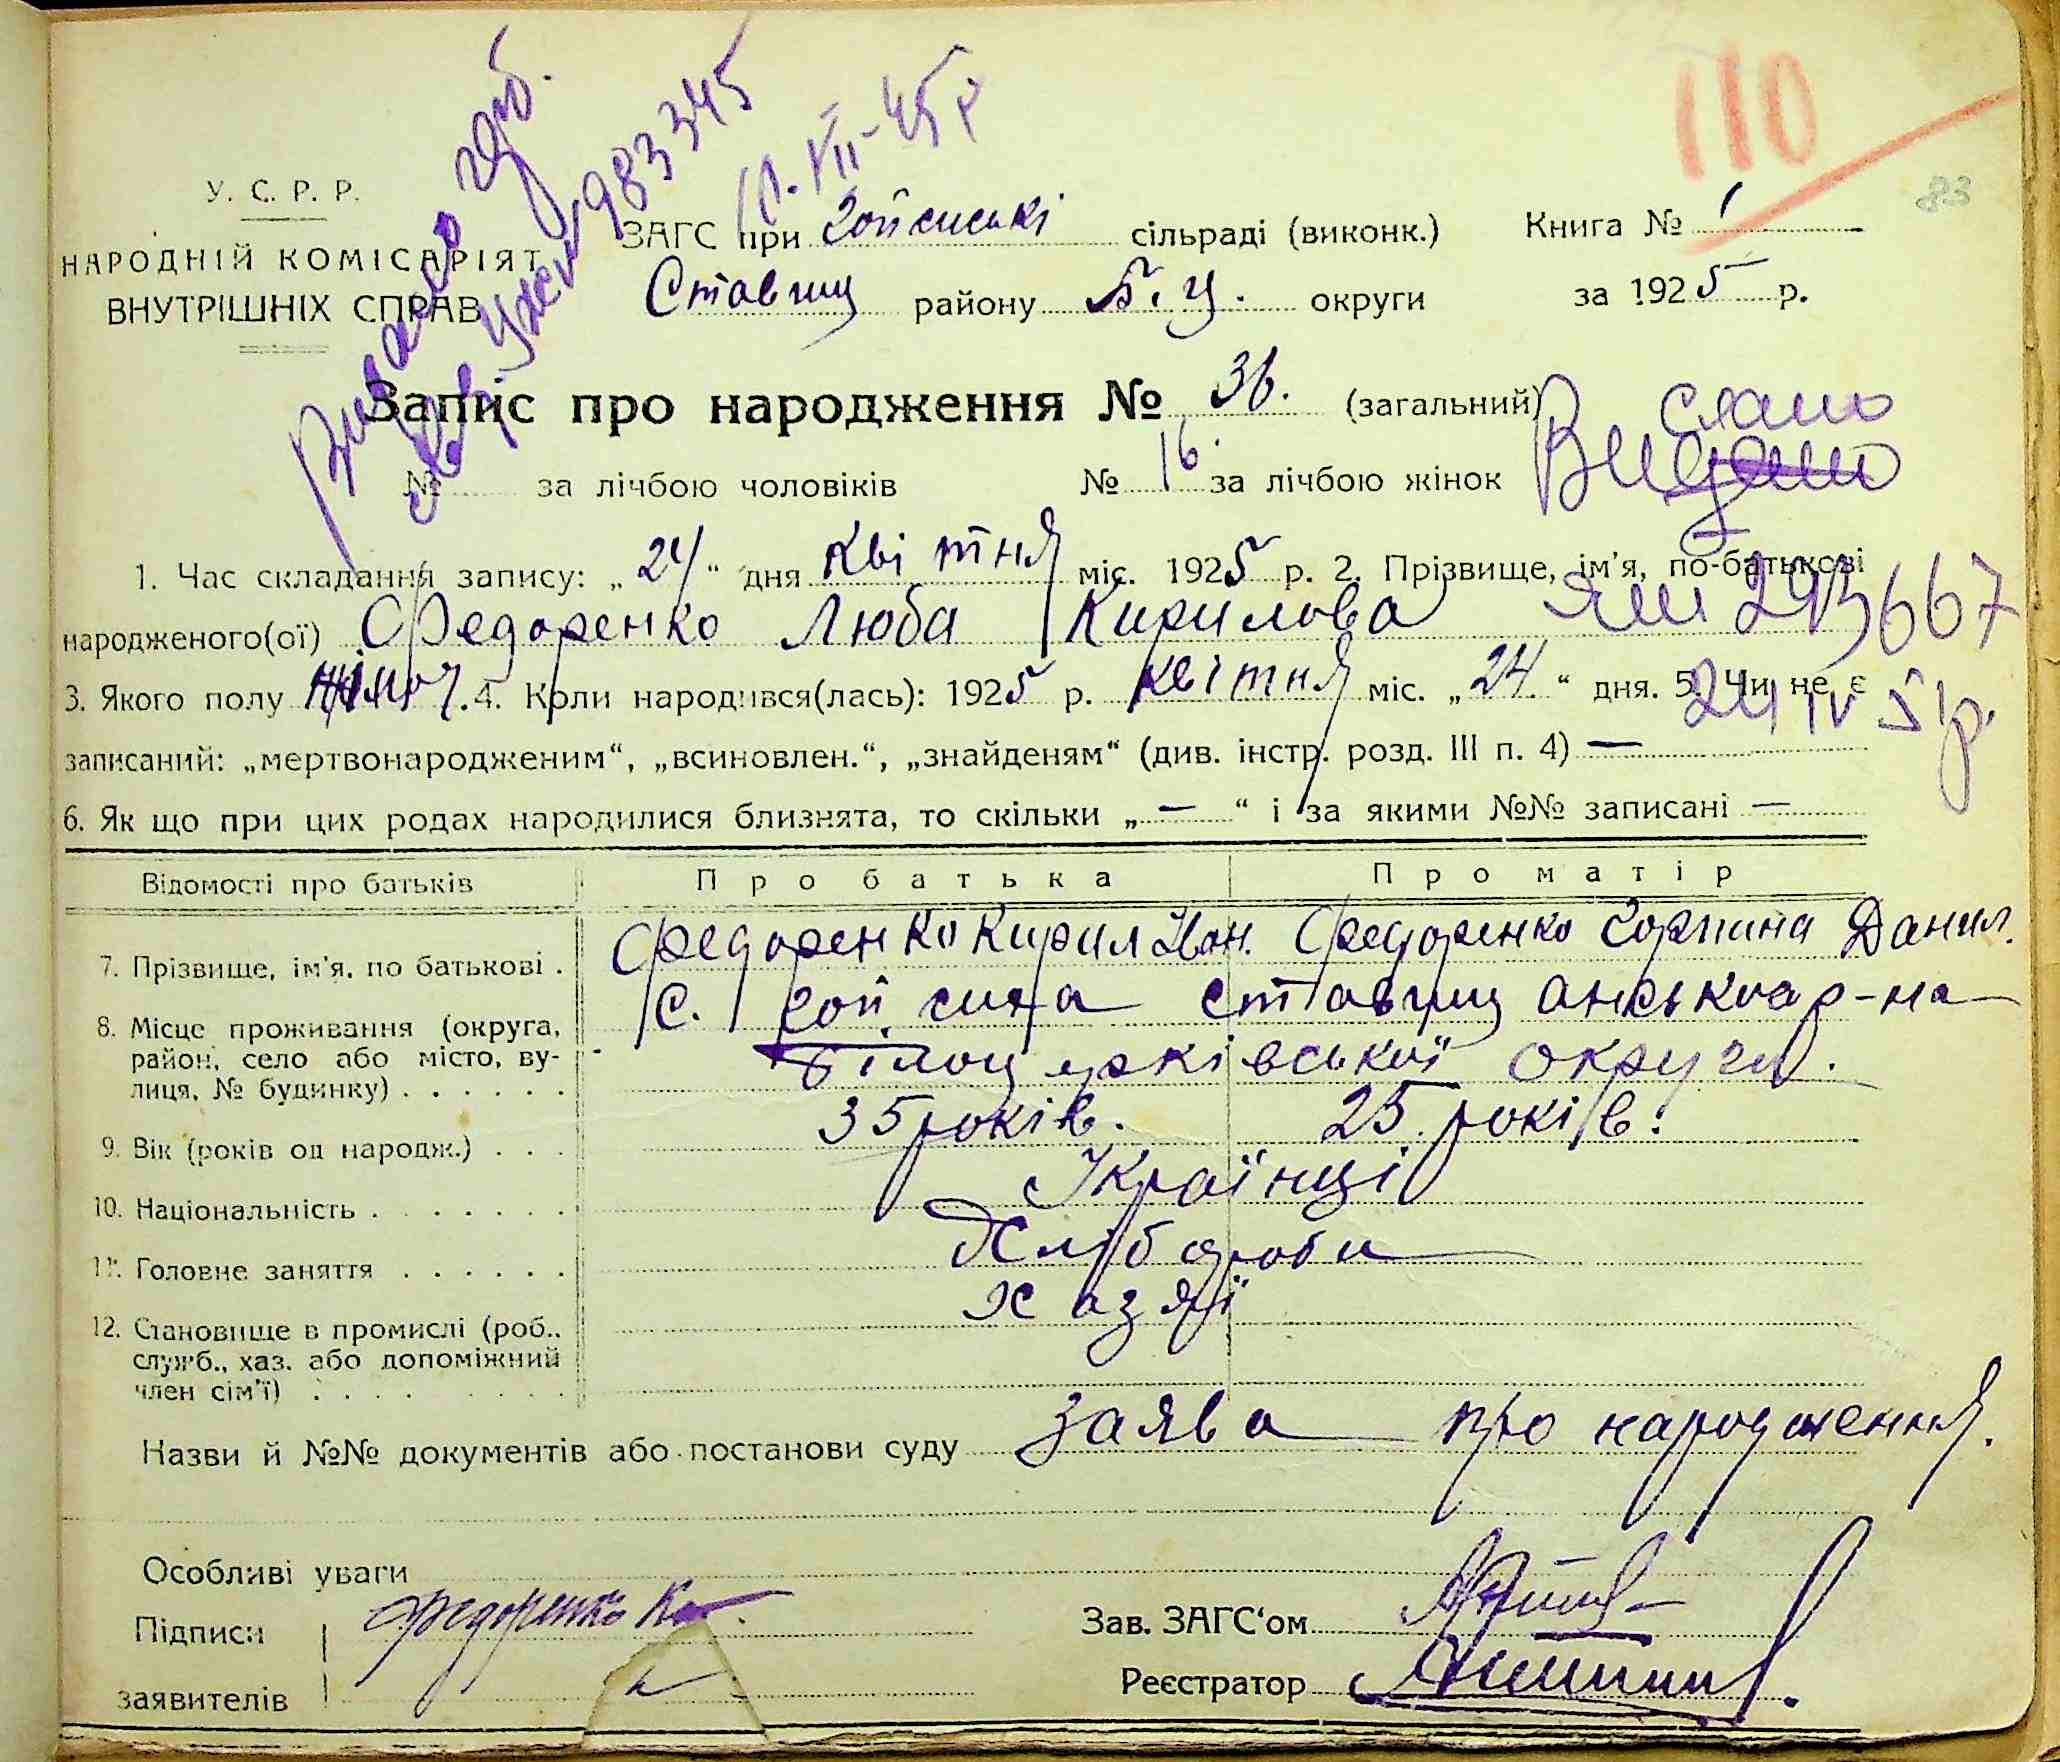 110
83
Видано
983345
10.VII-45р
У. С. Р. Р.
НАРОДНІЙ КОМІСАРІЯТ
ВНУТРІШНІХ СПРАВ
ЗАГС при сільраді (виконк.) Книга № 1
Ставищ району Б.Ц. округи за 1925 р.
Запис про народження № 36. (загальний)
№ за лічбою чоловіків № 16. за лічбою жінок
Видано
1. Час складання запису: „24“ дня квітня міс. 1925 р. 2. Прізвище, ім'я, по-батькові
народженого(ої) Федоренко Люба Кирилова
293667
3. Якого полу жіноч. 4. Коли народився(лась): 1925 р. квітня міс. „24.“ дня. 5. Чи не є
24 IV 51р.
записаний: „мертвонародженим“, „всиновлен.“, „знайденям“ (див. інстр. розд. III п. 4) —
6. Як що при цих родах народилися близнята, то скільки „—“ і за якими №№ записані —
Відомості про батьків Про батька Про матір
7. Прізвище, ім'я, по батькові . Федоренко Кирил Іван. Федоренко Данил.
8. Місце проживання (округа, район, село або місто, вулиця, № будинку) . . . . . . с. Ставищанського р-на
Білоцерківської округи.
9. Вік (років од народж.) . . . 35 років. 25 років.
10. Національність . . . . . . . Українці
11. Головне заняття . . . . . . Хлібороби
12. Становище в промислі (роб., служб., хаз. або допоміжний член сім'ї) . . . . . . Хазяї
Назви й №№ документів або постанови суду заява про народження.
Особливі уваги
Підписи Федоренко
заявителів
Зав. ЗАГС'ом
Реєстратор